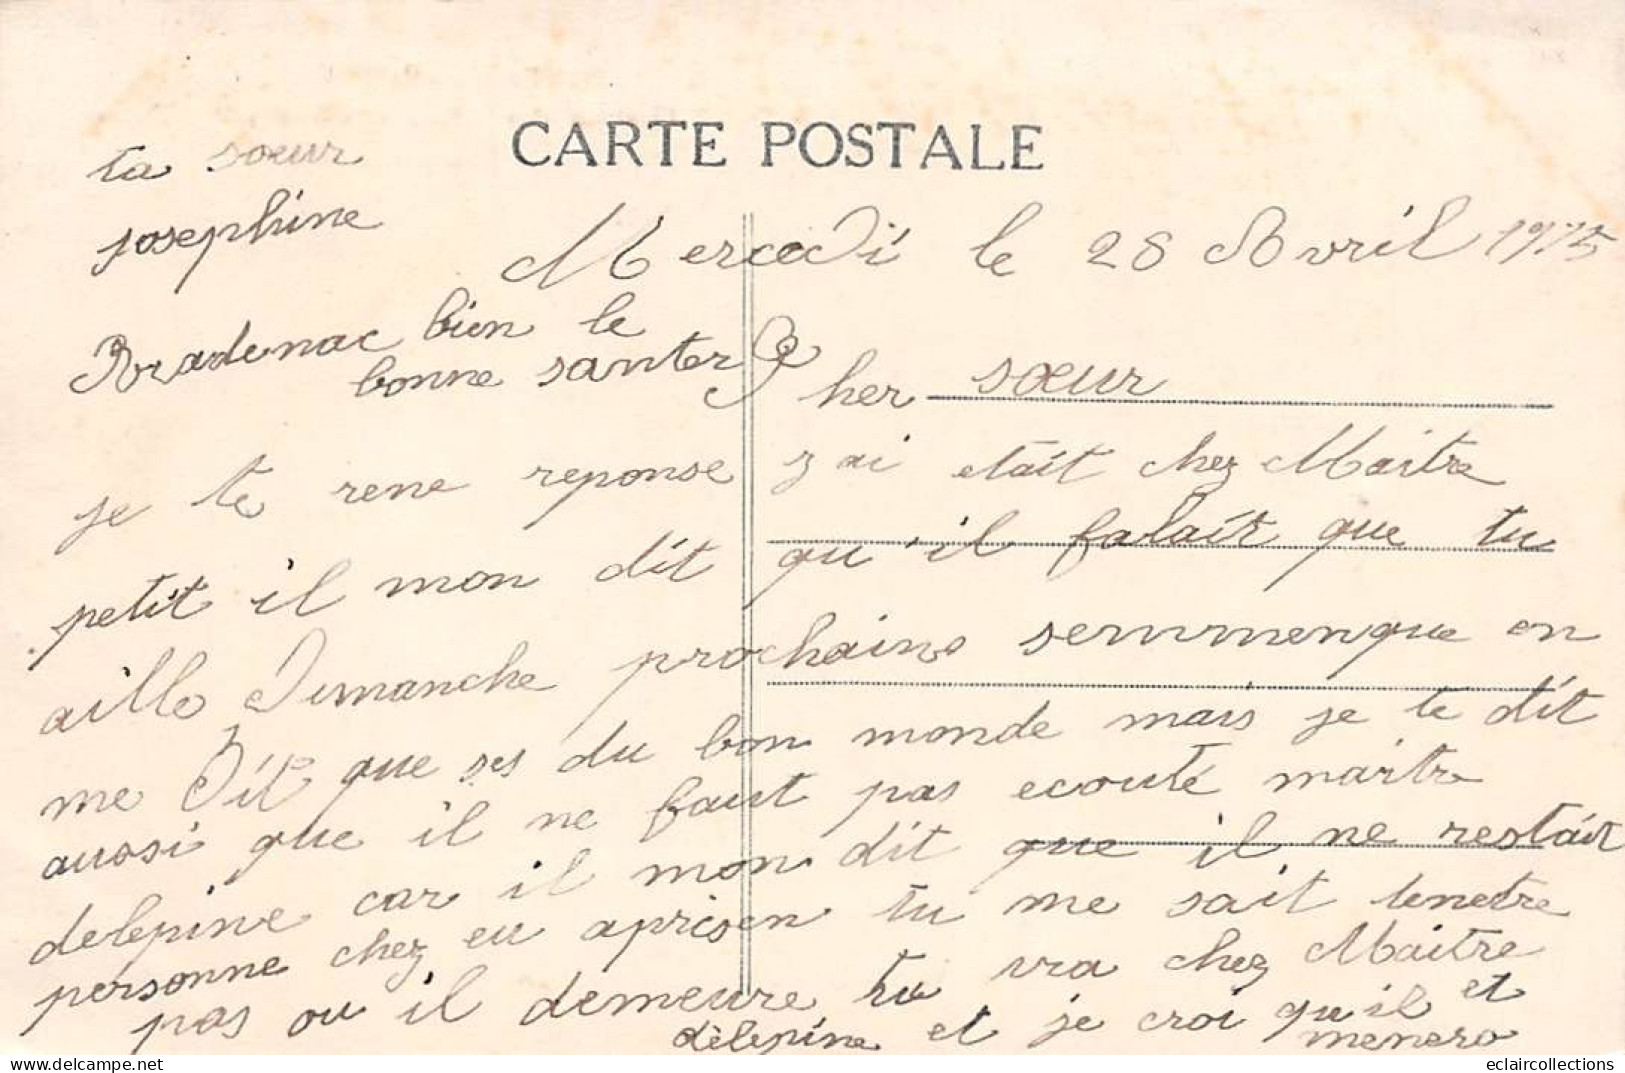 CARTE POSTALE
ta sœur
josephine
Mercedi le 28 Avril 1915
bien le
bonne santer
Cher sœur
je te rene reponse j ai etait chez Maitre
petit il mon dit qu'il falait que tu
aille Dimanche prochains semmenque on
me Dit que ses du bon monde mais je te dit
aussi que il ne faut pas ecouté maitre
delepine car il mon dit que il ne restait
personne chez eu aprisen tu me sait tenetre
pas ou il demeure tu vra chez Maitre
delepine et je croi qu'il et
menero
eclaircollections